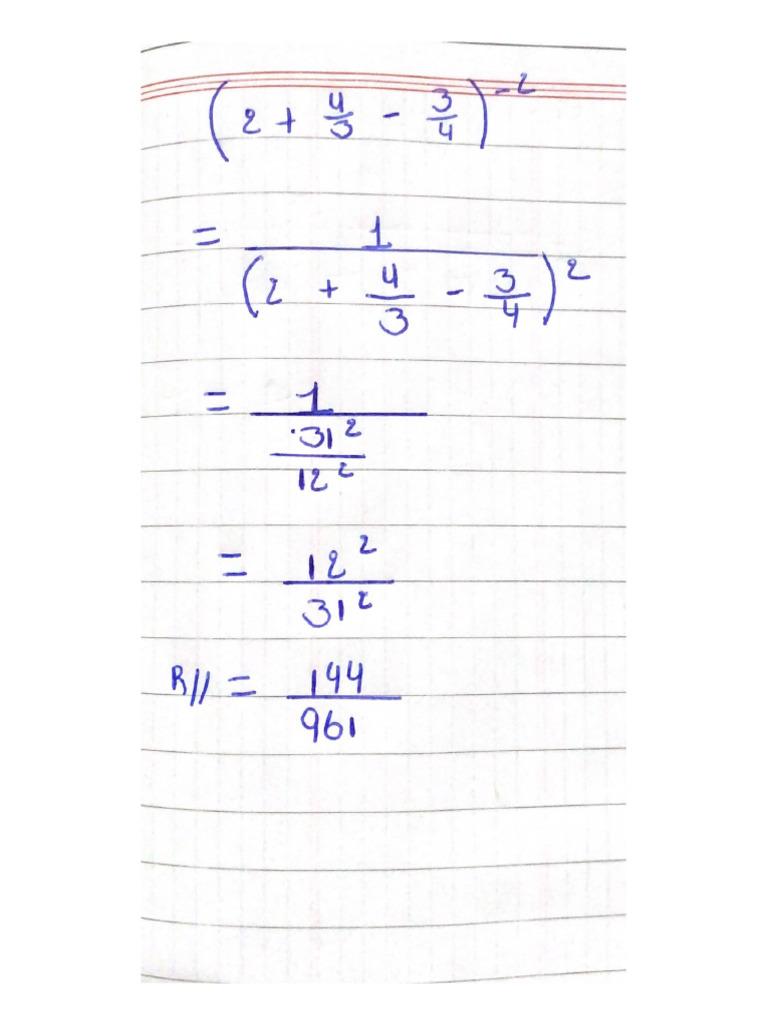 (2 + 4/3 - 3/4)^-2
= 1/(2 + 4/3 - 3/4)^2
= 1/(31^2/12^2)
= 12^2/31^2
R// = 144/961